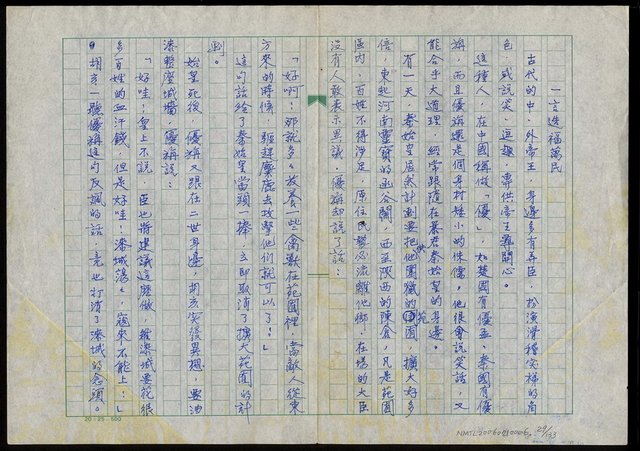 一言造福萬民
古代的中、外帝王，身邊多有弄臣，扮演滑稽突梯的角
色，或說笑、逗趣，專供帝王尋開心。
這種人，在中國稱做「優」，如楚國有優孟、秦國有優
旃，而且優旃還是個身材矮小的侏儒，他很會說笑話，又
能合乎大道理，經常跟隨在暴君秦始皇的身邊。
有一天，秦始皇居然計劃要把他圍獵的苑囿，擴大好多
倍，東起河南靈寶的函谷關，西至陝西的陳倉，凡是苑
區內，百姓不得涉足，原住民都必須離他鄉，在場的大臣
沒有人敢表示異議，優旃却說了話：
「好啊！那就多多放養一些禽獸在苑囿裡，當敵人從東
方來的時候，驅趕麋鹿去攻擊他們就可以了！」
這句話給了秦始皇當頭一棒，立即取消了擴大苑囿的計
劃。
始皇死後，優旃又跟在二世身邊，胡亥突發異想，要油
漆整座城牆，優旃說：
「好哇！皇上不說，臣也將建議這麼做，雖漆城要花很
多百姓的血汗錢，但是好哇！漆城蕩蕩，寇來不能上！」
胡亥一聽優旃這句反諷的話，竟也打消了漆城的念頭。
20×25=500
NMTL20060010006
29/133